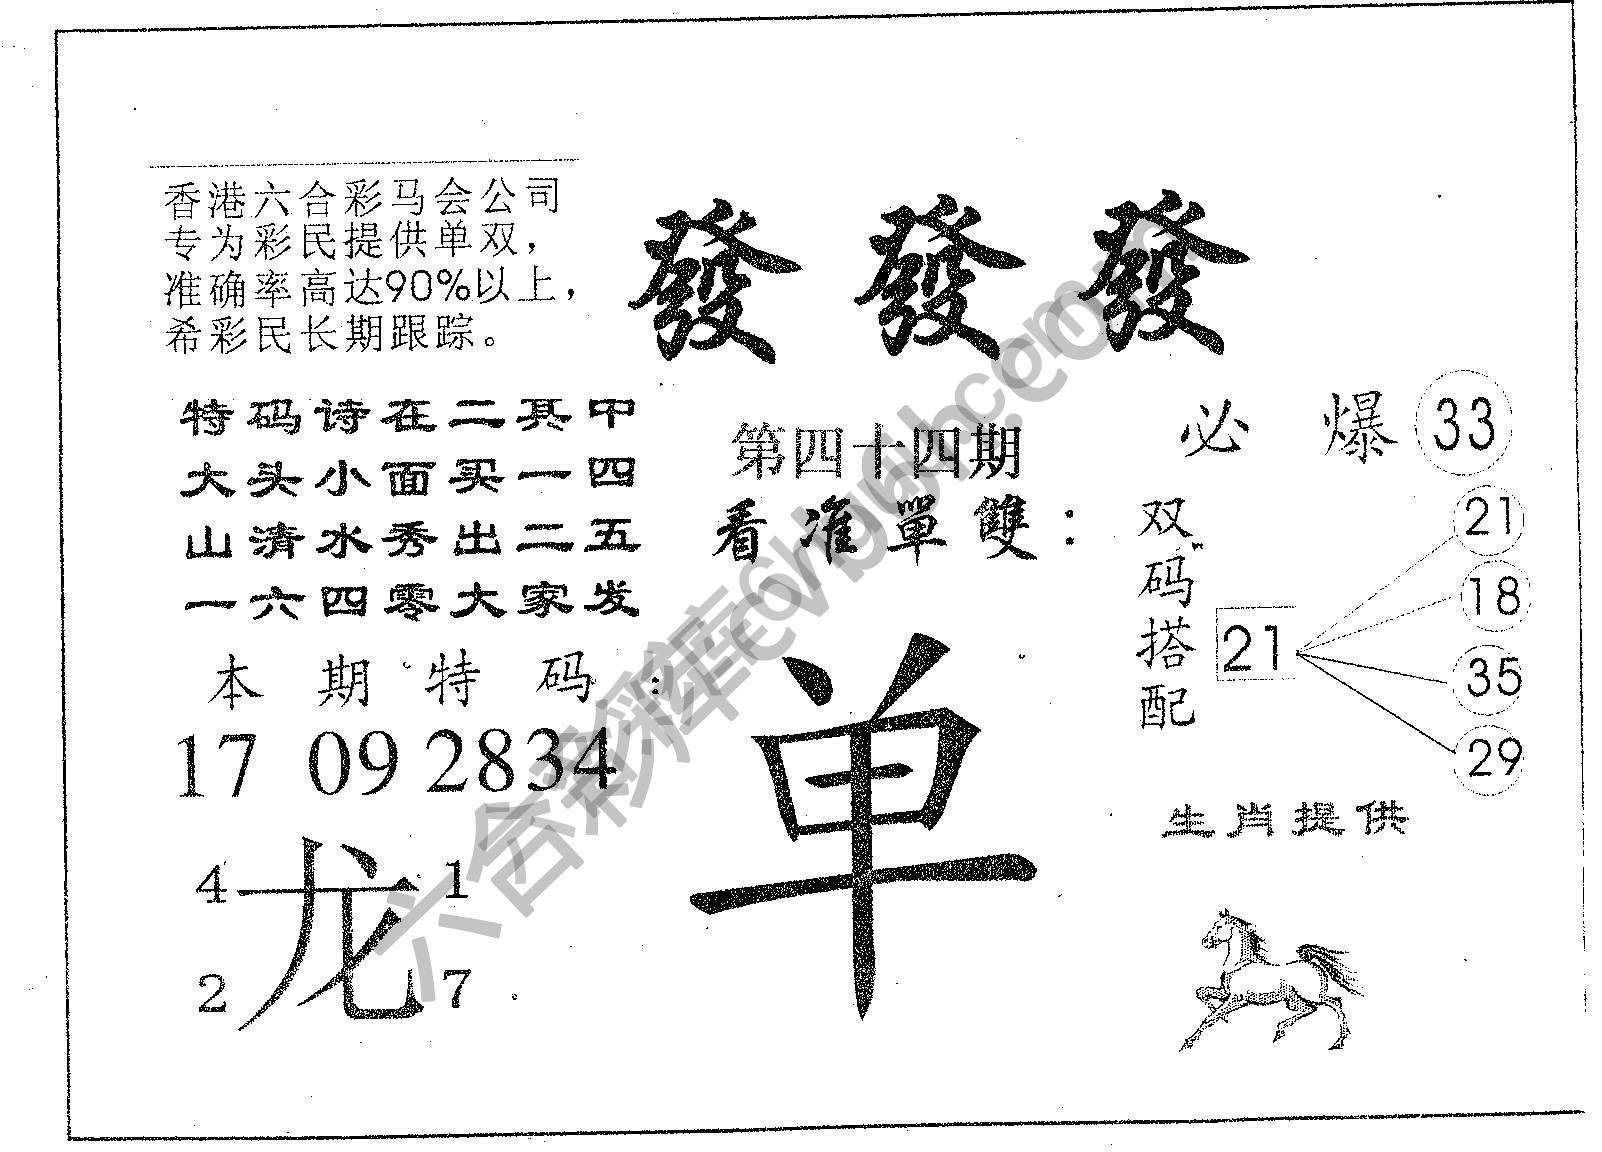 香港六合彩马会公司
专为彩民提供单双，
准确率高达90%以上，
希彩民长期跟踪。
發發發
特码诗在二其中
大头小面买一四
山清水秀出二五
一六四零大家发
第四十四期
看准單雙：
必爆33
双码搭配
21
21
18
35
29
本期特码：
17 09 28 34
单
生肖提供
4 1
龙
2 7
六合彩库